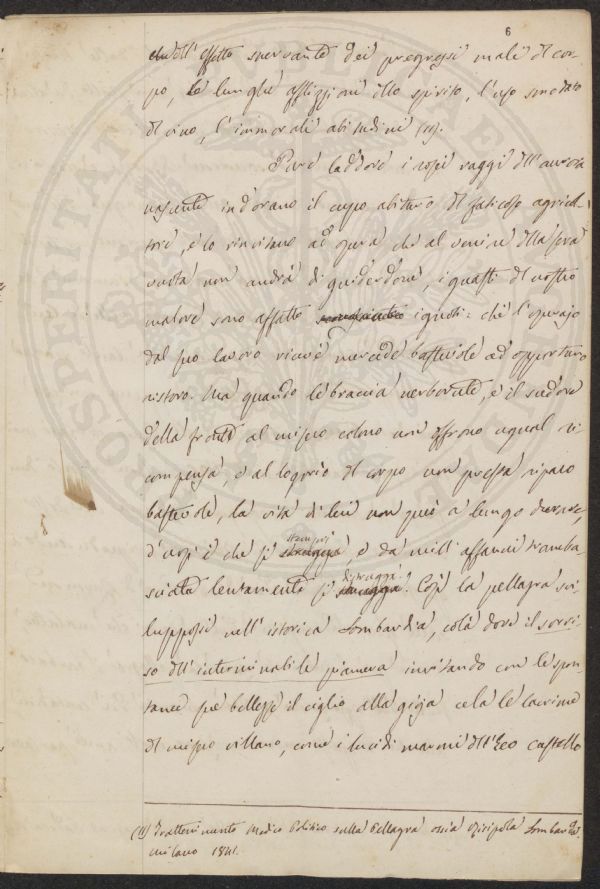 6
dell' effetto snervante dei pregressi mali di cor-
po, le lunghe afflizioni dello spirito, l'uso smodato
di vino, l'immorali abitudini (11).
Pure laddove i rosei raggi dell'aurora
nascente indorano il cupo abituro di faticoso agricol-
tore, e lo rinvitano ad opera che al venire della sera
vuota non andrà di guiderdone, i guasti di nostro
malore sono affatto ignoti: chè l'operajo
dal suo lavoro riceve mercede bastevole ad opportuno
ristoro. Ma quando le braccia nerborute, e il sudore
della fronte al misero colono non offrono ugual ri
compensa, e al logorio di corpo non presta riparo
bastevole, la vita di lui non può a lungo durare,
d'uopo è che si, e da mill' affanni tramba-
sciata lentamente si distrugga. Così la pellagra svi-
luppossi nell' istorica Lombardia, colà dove il sorri-
so dell'interminabile pianura invitando con le spon-
tanee sue bellezze il ciglio alla gioja cela le lacrime
di misero villano, come i lucidi marmi dell' castello
(11) Trattenimento Medico Politico sulla Pellagra ossia Risipola Lombarda.
Milano 1841.
PROSPERITATI